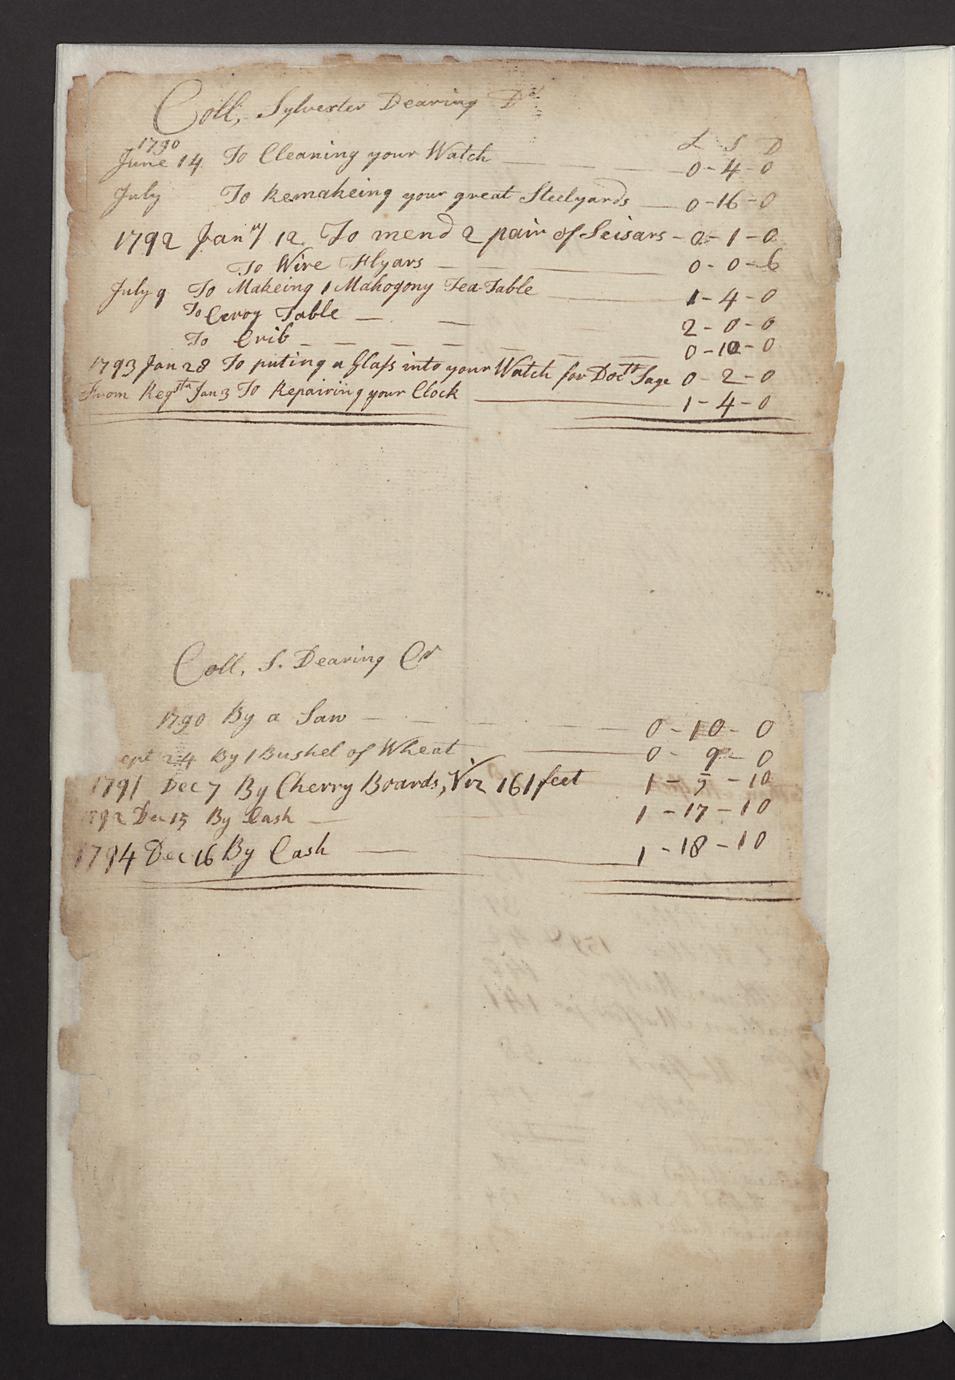 Coll, Sylvester Dearing Dr
1790 £ S D
June 14 To Cleaning your Watch 0-4-0
July To Remakeing your great Steelyards 0-16-0
1792 Jany 12 To mend 2 pair of Seisars - 0-1-0
To Wire Flyars 0-0-6
July 9 To Makeing 1 Mahogony Tea-Table 1-4-0
To Table 2-0-0
To Crib 0-10-0
1793 Jan 28 To puting a Glass into your Watch for Doctr Sage 0-2-0
From Jan 3 To Repairiing your Clock 1-4-0
Coll, S. Dearing Cr
1790 By a Saw 0-10-0
ept 24 By 1 Bushel of Wheat 0-9-0
1791 Dec 7 By Cherry Boards, Viz 161 feet 1-5-10
792 Dec 15 By Cash 1-17-10
1794 Dec 16 By Cash 1-18-10